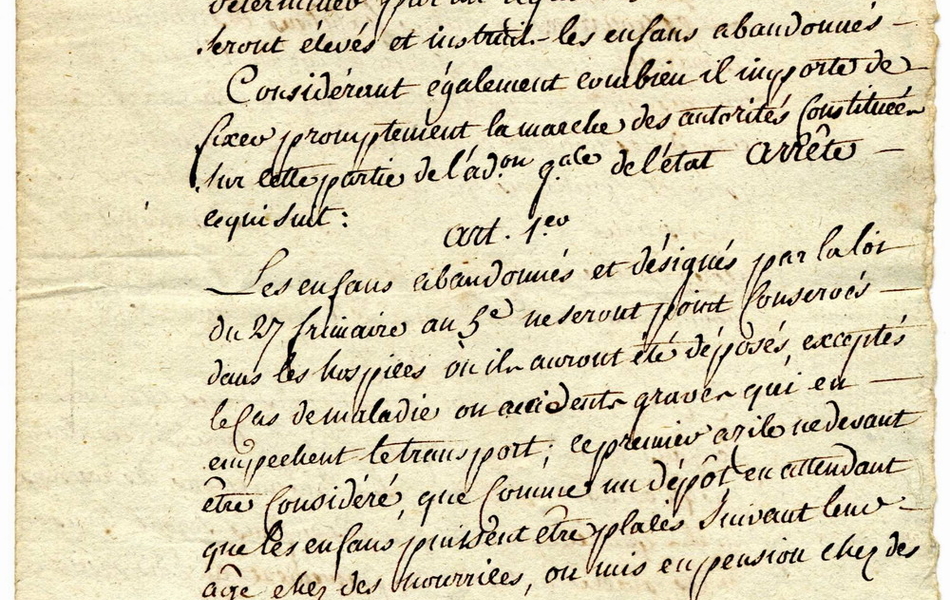 déterminés par un
seront élevés et instruit les enfans abandonnés –
Considérant également combien il importe de
fixer promptement la marche des autorités constituées
sur cette partie de l'ad.on g.ale de l'état Arrête –
ce qui suit :
art. 1.er
Les enfans abandonnés et désignés par la loi
du 27 frimaire an 5e ne seront point Conservés –
dans les hospices où ils auront été déposés, exceptés
le Cas de maladie ou accidents graves qui en –
empechent le transport ; ce premier azile ne devant
être Considéré, que Comme un dépôt en attendant
que les enfans puissent être placés Suivant leur –
age chez des nourrices, ou mis en pension chez des